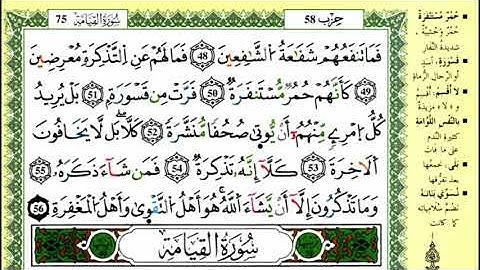 حِزْب 58
سُورَةُ القِيَامَةِ 75
فَمَا تَنفَعُهُمْ شَفَاعَةُ الشَّافِعِينَ 48 فَمَا لَهُمْ عَنِ التَّذْكِرَةِ مُعْرِضِينَ
49 كَأَنَّهُمْ حُمُرٌ مُّسْتَنفَرَةٌ 50 فَرَّتْ مِن قَسْوَرَةٍ 51 بَلْ يُرِيدُ
كُلُّ امْرِئٍ مِّنْهُمْ أَن يُوتَى صُحُفًا مُّنَشَّرَةً 52 كَلَّا بَل لَّا يَخَافُونَ
الَاخِرَةَ 53 كَلَّا إِنَّهُ تَذْكِرَةٌ 54 فَمَن شَاءَ ذَكَرَهُ 55
وَمَا تَذْكُرُونَ إِلَّا أَن يَشَاءَ اللَّهُ هُوَ أَهْلُ التَّقْوَى وَأَهْلُ الْمَغْفِرَةِ 56
سُورَةُ القِيَامَةِ
حُمُرٌ مُسْتَنْفَرَةٌ
حُمُرٌ وَحْشِيَّة
شديدة النِّفار
قَسْوَرَةٍ: أسد
أو الرجال الرُّماة
لا أُقْسِمُ: أُقْسِمُ
و لا مزيدة
بالنَّفْسِ اللَّوَّامَةِ
كثيرة الندم
على ما فات
بَلَى: نجمعها
بعد تفرقها
نُسَوِّيَ بَنَانَهُ
نضم سلامياته
كما كانت